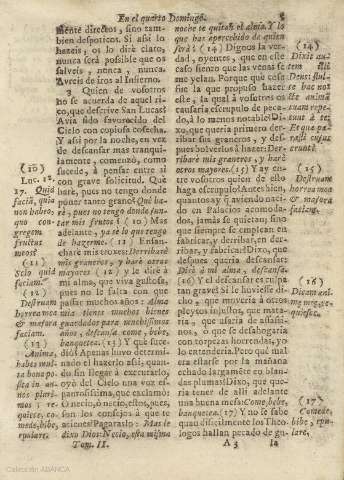 En el quarto Domingo. 5
mente directos, sino tam-
bien despoticos. Si assi lo
hazeis, os lo dirè claro,
nunca serà possible que os
salveis, nunca, nunca.
Aveis de iros al Infierno.
3 Quien de vosotros
no se acuerda de aquel ri-
co, que descrive San Lucas?
Avia sido favorecido del
Cielo con copiosa cosecha.
Y assi por la noche, en vez
de descansar mas tranqui-
lamente, començò, como
sucede, à pensar entre sì
con grave solicitud. Què
harè, pues no tengo donde
poner tanto grano? Què ha-
rè, pues no tengo donde jun-
tar mis frutos? (10) Mas
adelante, ya sè lo que tengo
de hazerme. (11) Ensan-
charè mis troxes: Derribarè
mis graneros, y harè otros
mayores (12) y le dirè à
mi alma, que viva gustosa,
pues no la faltarà que
passar muchos años: Alma
mia tienes muchos bienes
guardados para muchissimos
años, descansa, come, bebe,
banquetea. (13) Y què suce-
diò? Apenas huvo determi-
nado el hazerlo assi, quan-
do sin llegar à executarlo,
oyò del Cielo una voz es-
pantosissima, que exclamò:
O necio, ò necio, estos, pues,
son los consejos à que te
aplicas? Pagaràslo: Mas le
dixo Dios: Necio, esta misma
Tom. II.
(10)
Luc. 12.
17. Quid
faciã, quia
non habeo,
quo con-
gregem
fructus
meos?
(11)
Scio quid
faciam.
(12)
Destruam
horrea mea
& maiora
faciam.
(13)
Anima,
habes mul-
ta bona po-
sita in an-
nos pluri-
mos: re-
quiesce, co-
mede, bibe,
epulare.
noche te quitan el alma. Y lo
que has apercebido de quien
serà? (14) Dignos la ver-
dad, oyentes, que en este
caso siempre las venas se
me yelan. Porque què cosa
fue la que propuso hazer
este, la qual à vosotros os
causaria escrupulo de peca-
do, à lo menos notable? Di-
xo, que queria primero der-
ribar sus graneros, y des-
pues bolverlos à hazer: Der-
ribarè mis graneros, y harè
otros mayores. (15) Y ay en-
tre vosotros quien de ello
haga escrupulo? Antes bien,
quantos ay q̃ aviendo naci-
do en Palacios acomoda-
dos, jamàs se quietan, sino
que siempre se emplean en
fabricar, y derribar, en der-
ribar, y fabricar? Dixo, que
despues queria descansar:
Dirè à mi alma, descansa.
(16) Y el descansar es culpa
tan grave? Si le huviesse di-
cho, que moveria à otros
pleytos injustos, que mata-
ria, que usaria de assasi-
nos, ò que se desahogaria
con torpezas horrendas, yo
lo entenderia. Pero què mal
era estarse por la mañana
echado largamẽte en blan-
das plumas? Dixo, que que-
ria tener de alli adelante
una buena mesa: Come, bebe,
banquetea. (17) Y no se sabe
quan dificilmente los Theo-
logos hallan pecado de gu-
A 3 la
(14)
Dixit au-
tem illi
Deus: stul-
te hac noc-
te animã
tuam repe-
tunt à te:
Et quæ pa-
rasti cujus
erunt?
(15)
Destruam
horrea mea
& maiora
faciam.
(16)
Dicam ani-
mæ meæ, re-
quiesce.
(17)
Comede,
bibe, epu-
lare.
Colección ABANCA